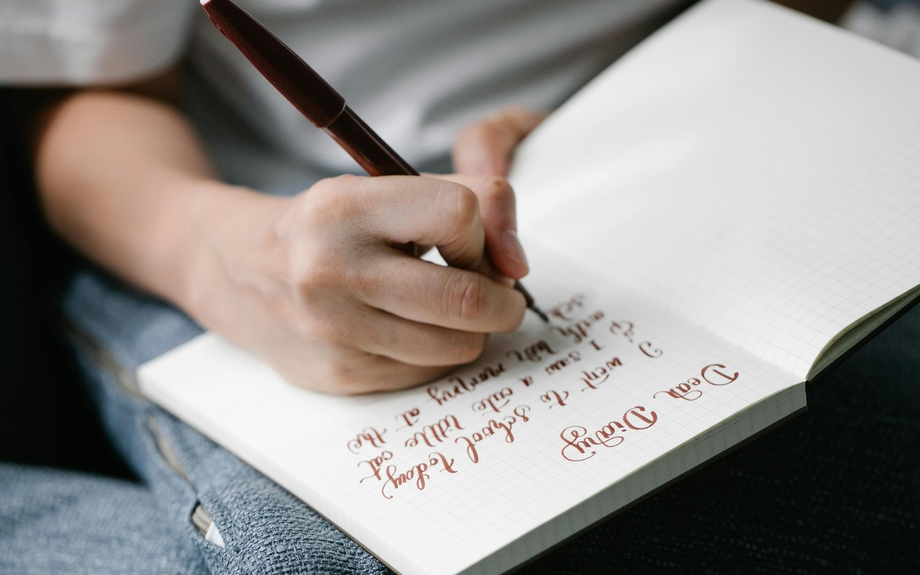 Dear Diary
I went to school today
I saw a cute little cat
running at the
sch